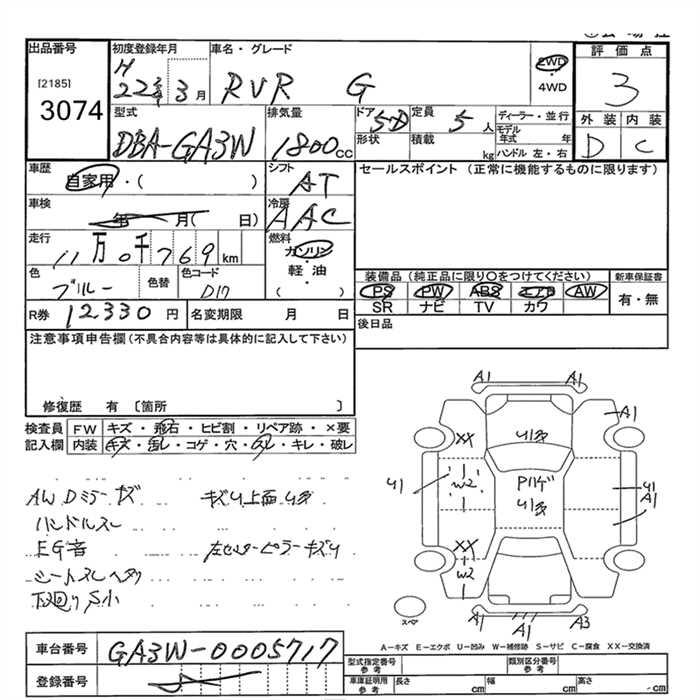 出品番号
[2185]
3074
初度登録年月
H
22年 3月
車名・グレード
RVR G
2WD
4WD
評価点
3
外装 内装
D C
型式
DBA-GA3W
排気量
1800cc
ドア
5D
形状
定員
5人
積載
kg
ディーラー・並行
モデル年式 年
ハンドル 左・右
車歴
自家用・( )
シフト
AT
車検
年 月( 日)
冷房
AAC
走行
11万0千769km
燃料
ガソリン
・
軽・油
( )
色
ブルー
色替
色コード
D17
R券 12330円
名変期限 月 日
セールスポイント (正常に機能するものに限ります)
装備品 (純正品に限り〇をつけてください)
新車保証書
PS PW ABS エアB AW
SR ナビ TV カワ
有・無
後日品
注意事項申告欄(不具合内容等は具体的に記入して下さい)
修復歴 有 〔箇所 〕
検査員
記入欄
FW キズ・飛石・ヒビ割・リペア跡・×要
内装 キズ・汚レ・コゲ・穴・スレ・キレ・破レ
AW Dミラーキズ
ハンドルスレ
EG音
下廻りS小
A1
A1
XX
U多
W2
Pハゲ
U多
U1
U1
A1
XX
W2
A1
A1
A3
スペア
A-キズ E-エクボ U-凹み W-補修跡 S-サビ C-腐食 XX-交換済
車台番号 GA3W-0005717
登録番号
型式指定番号
参考
類別区分番号
参考
車庫証明用
参考
長さ cm
幅 cm
高さ cm